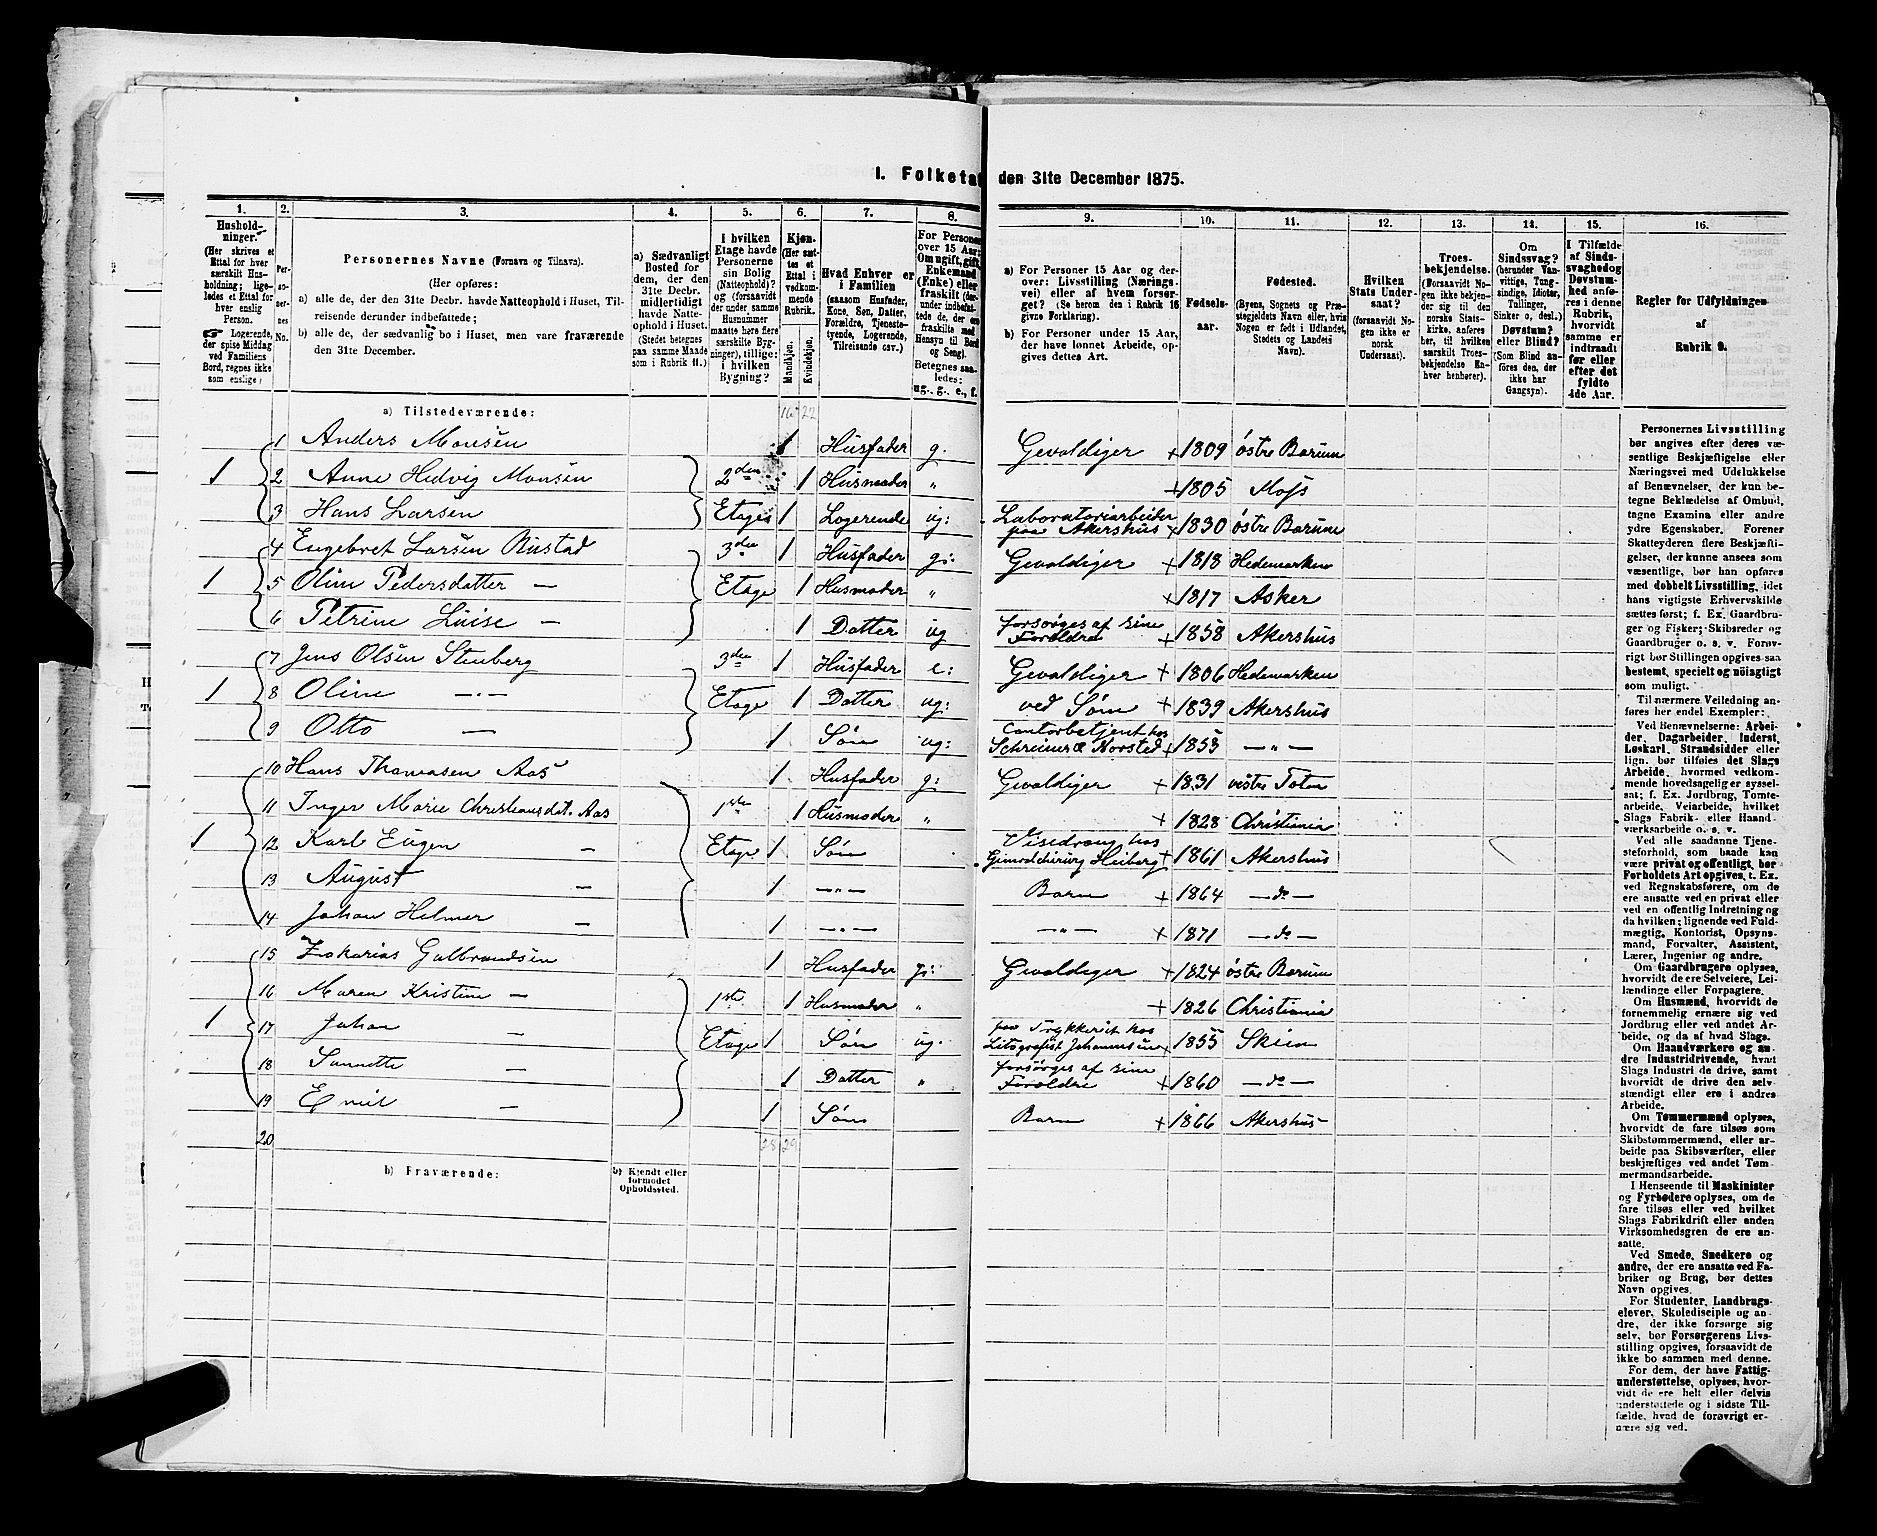 I. Folketa den 31te December 1875.
1. 2. 3. 4. 5. 6. 7. 8. 9. 10. 11. 12. 13. 14. 15. 16.
Hushold-
ninger.
(Her skrives et
Ettal for hver
særskilt Hus-
holdning; lige-
ledes et Ettal for
hver enslig
Person.
☞ Logerende,
der spise Middag
ved Familiens
Bord, regnes ikke
som enslige)
Per-
so-
ner-
nes
No.
Personernes Navne (Fornavn og Tilnavn).
(Her opføres:
a) alle de, der den 31te Decbr. havde Natteophold i Huset, Til-
reisende derunder indbefattede;
b) alle de, der sædvanlig bo i Huset, men vare fraværende
den 31te December.
a) Sædvanligt
Bosted for
dem, der den
31te Decbr.
midlertidigt
havde Natte-
ophold i Huset.
(Stedet betegnes
paa samme Maade
som i Rubrik 11.)
I hvilken
Etage havde
Personerne
sin Bolig
(Natteophold)?
og (forsaavidt
der under samme
Husnummer
maatte høre flere
særskilte Byg-
ninger), tillige:
i hvilken
Bygning?
Kjøn.
(Her sæt-
tes et
Ettal i
vedkom-
mende
Rubrik.
Mandkjøn.
Kvindekjøn.
Hvad Enhver er
i Familien
(saasom Husfader,
Kone, Søn, Datter,
Forældre, Tjeneste-
tyende, Logerende,
Tilreisende osv.)
For Personer
over 15 Aar:
Om ugift, gift,
Enkemand
(Enke) eller
fraskilt (der-
under indbefat-
tede de, der ere
fraskilte med
Hensyn til Bord
og Seng).
Betegnes saa-
ledes:
ug., g., e., f.
a) For Personer 15 Aar og der-
over: Livsstilling (Nærings-
vei) eller af hvem forsør-
get? (Se herom den i Rubrik 16
givne Forklaring).
b) For Personer under 15 Aar,
der have lønnet Arbeide, op-
gives dettes Art.
Fødsels-
aar.
Fødested.
(Byens, Sognets og Præ-
stegjeldets Navn eller, hvis
Nogen er født i Udlandet,
Stedets og Landets
Navn).
Hvilken
Stats Under-
saat?
(forsaavidt No-
gen ikke er
norsk
Undersaat).
Troes-
bekjendelse.
(Forsaavidt No-
gen ikke bekjen-
der sig til den
norske Stats-
kirke, anføres
her, til hvilken
særskilt Troes-
bekjendelse En-
hver henhører).
Om
Sindssvag?
(herunder Van-
vittige, Tung-
sindige, Idioter,
Tullinger,
Sinker o, desl.)
Døvstum?
eller Blind?
(Som Blind an-
føres den, der
ikke har
Gangsyn).
I Tilfælde
af Sinds-
svaghed og
Døvstum-
hed anfø-
res i denne
Rubrik,
hvorvidt
samme er
indtraadt
før eller
efter det
fyldte
4de Aar.
Regler for Udfyldningen
af
Rubrik 9.
a) Tilstedeværende: 16 22
1 Anders Monsen 1 Husfader g. Gevaldiger + 1809 østre Barum
1 2 Anne Hedvig Monsen 2den 1 Husmoder " + 1805 Moss
3 Hans Larsen Etage 1 Logerende ug: Laboratoriarbeider
paa Akershus + 1830 østre Barum
4 Engebret Larsen Rustad 3de 1 Husfader g: Gevaldiger + 1818 Hedemarken
1 5 Oline Pedersdatter — Etage 1 Husmoder " + 1817 Asker
6 Petrine Lovise — 1 Datter ug forsørges af sine
Foroldre + 1858 Akershus
7 Jens Olsen Stenberg 3den 1 Husfader e: Gevaldiger + 1806 Hedemarken
1 8 Oline —"— Etage 1 Datter ug: ved Søm + 1839 Akershus
9 Otto — 1 Søn ug: Contorbetjent hos
Schreiner & Korsted + 1853 —"—
10 Hans Thomasen Aas 1 Husfader g: Gevaldiger + 1831 vestre Toten
11 Inger Marie Christiansdat. Aas 1ste 1 Husmoder " + 1828 Christiania
1 12 Karl Eugen — Etage 1 Søn Visedreng hos
Heiberg + 1861 Akershus
13 August — 1 —"— Barn + 1864 —do—
14 Johan Helmer — 1 —"— —"— + 1871 —do—
15 Zakarias Gulbrandsen 1 Husfader g: Gevaldiger + 1824 østre Barum
16 Maren Kristine — 1ste 1 Husmoder " + 1826 Christiania
1 17 Johan — Etage 1 Søn ug. paa Trykkeriet hos
Litografist Johannesen + 1855 Skien
18 Sannette — 1 Datter " forsørges af sine
Foroldre + 1860 —do—
19 Emil — 1 Søn Barn + 1866 Akershus
20 28 29
b) Fraværende:
b) Kjendt eller
formodet
Opholdssted.
Personernes Livsstilling
bør angives efter deres væ-
sentlige Beskjæftigelse eller
Næringsvei med Udelukkelse
af Benævnelser, der kun be-
tegne Beklædelse af Ombud,
tagne Examina eller andre
ydre Egenskaber. Forener
Skatteyderen flere Beskjæfti-
gelser, der kunne ansees som
væsentlige, bør han opføres
med dobbelt Livsstilling, idet
hans vigtigste Erhvervskilde
sættes først; f. Ex. Gaardbru-
ger og Fisker; Skibsreder og
Gaardbruger o. s. v. Forøv-
rigt bør Stillingen opgives saa
bestemt, specielt og nöiagtigt
som muligt.
Til nærmere Veiledning an-
føres her endel Exempler:
Ved Benævnelserne: Arbei-
der, Dagarbeider, Inderst,
Løskarl, Strandsidder eller
lign. bør tilføies det Slags
Arbeide, hvormed vedkom-
mende hovedsagelig er syssel-
sat; f. Ex. Jordbrug, Tomte-
arbeide, Veiarbeide, hvilket
Slags Fabrik- eller Haand-
værksarbeide o. s. v.
Ved alle saadanne Tjene-
steforhold, som baade kan
være privat og offentligt, bør
Forholdets Art opgives, t. Ex.
ved Regnskabsførere, om de
ere ansatte ved en privat eller
ved en offentlig Indretning og
da hvilken; lignende ved Fuld-
mægtig, Kontorist, Opsyns-
mand, Forvalter, Assistent,
Lærer, Ingeniør og andre.
Om Gaardbrugere oplyses,
hvorvidt de ere Selveiere, Lei-
lændinge eller Forpagtere.
Om Husmænd, hvorvidt de
fornemmelig ernære sig ved
Jordbrug eller ved andet Ar-
beide, og da af hvad Slags.
Om Haandværkere og an-
dre Industridrivende, hvad
Slags Industri de drive, samt
hvorvidt de drive den selv-
stændigt eller ere i andres
Arbeide.
Om Tømmermænd oplyses,
hvorvidt de fare tilsøs som
Skibstømmermænd, eller ar-
beide paa Skibsværfter, eller
beskjæftiges ved andet Tøm-
mermandsarbeide.
I Henseende til Maskinister
og Fyrbødere oplyses, om de
fare tilsøs eller ved hvilket
Slags Fabrikdrift eller anden
Virksomhedsgren de ere an-
satte.
Ved Smede, Snedkere og
andre, der ere ansatte ved Fa-
briker og Brug, bør dettes
Navn opgives.
For Studenter, Landbrugs-
elever, Skoledisciple og an-
dre, der ikke forsørge sig
selv, bør Forsørgerens Livs-
stilling opgives, forsaavidt de
ikke bo sammen med denne.
For dem, der have Fattig-
understøttelse, oplyses, hvor-
vidt de ere helt eller delvis
understøttede og i sidste Til-
fælde, hvad de forøvrigt er-
nære sig ved.